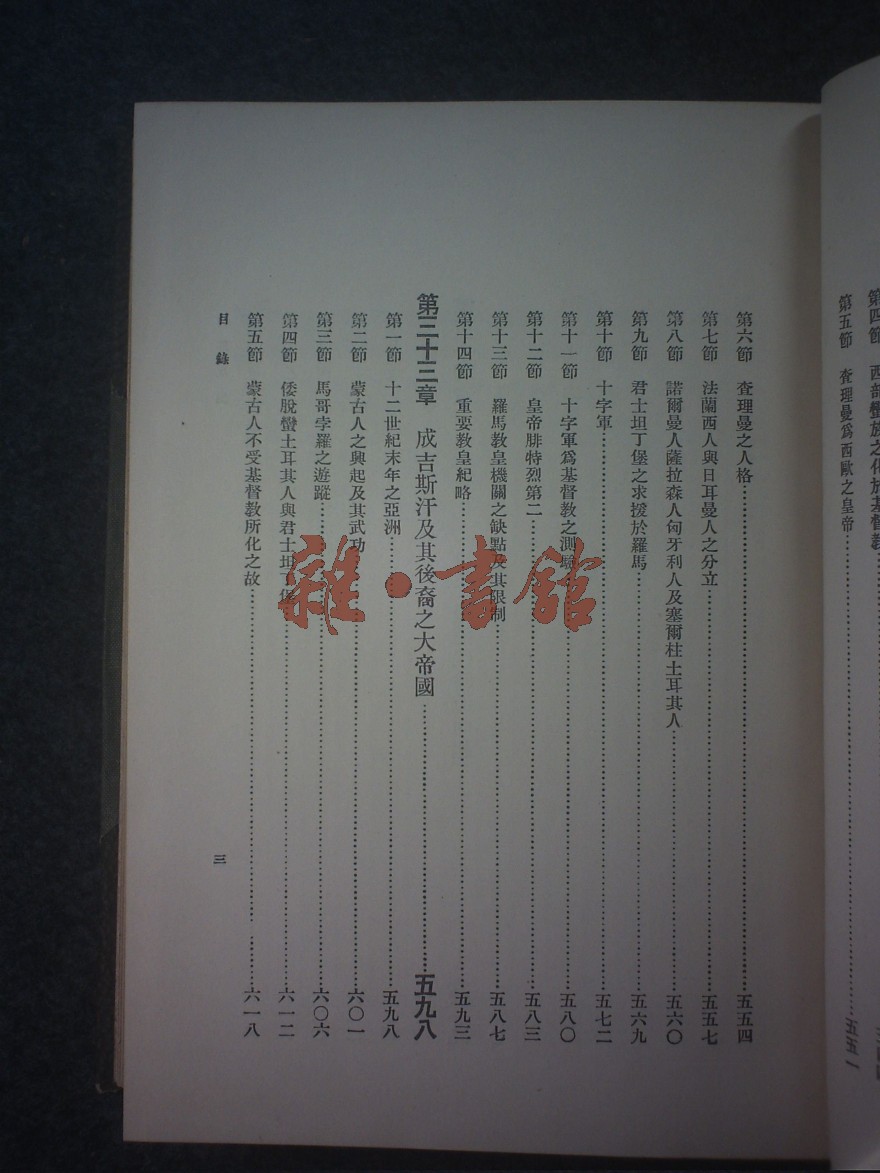 第四節　西部蠻族之化於基督教
第五節　查理曼爲西歐之皇帝……五五一
第六節　查理曼之人格……五五四
第七節　法蘭西人與日耳曼人之分立……五五七
第八節　諾爾曼人薩拉森人匈牙利人及塞爾柱土耳其人……五六〇
第九節　君士坦丁堡之求援於羅馬……五六九
第十節　十字軍……五七二
第十一節　十字軍爲基督教之測驗……五八〇
第十二節　皇帝腓特烈第二……五八三
第十三節　羅馬教皇機關之缺點及其限制……五八七
第十四節　重要教皇紀略……五九三
第三十三章　成吉斯汗及其後裔之大帝國……五九八
第一節　十二世紀末年之亞洲……五九八
第二節　蒙古人之興起及其武功……六〇一
第三節　馬哥孛羅之遊蹤……六〇六
第四節　倭脫蠻土耳其人與君士坦丁堡……六一二
第五節　蒙古人不受基督教所化之故……六一八
目錄　三
雜·書館